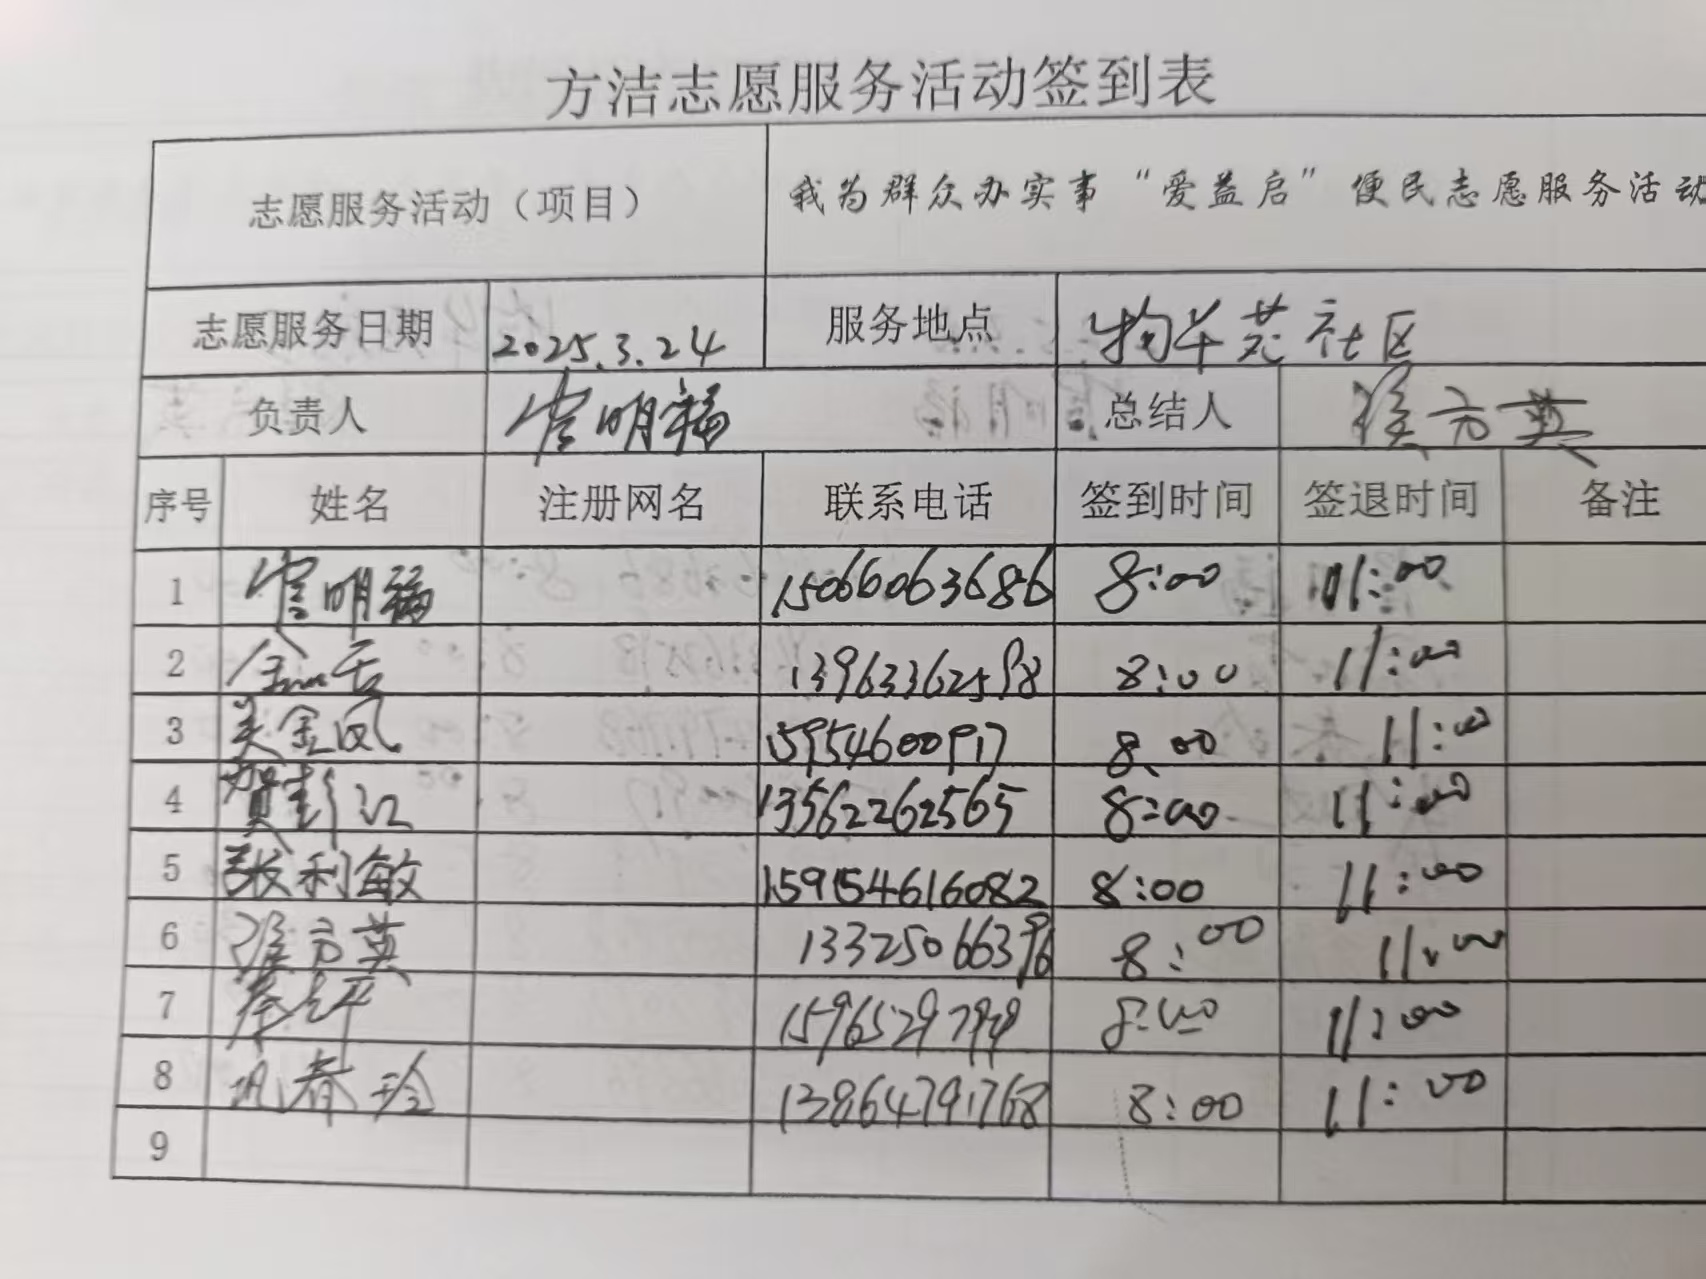 方洁志愿服务活动签到表
志愿服务活动（项目） 我为群众办实事“爱益启”便民志愿服务活动
志愿服务日期 2025.3.24 服务地点 物华苑社区
负责人 管明福 总结人 方英
序号 姓名 注册网名 联系电话 签到时间 签退时间 备注
1 管明福 15066063686 8:00 11:00
2 13963362598 8:00 11:00
3 金凤 15954600917 8:00 11:00
4 贺彭江 13562262565 8:00 11:00
5 张利敏 159154616082 8:00 11:00
6 方英 13325066396 8:00 11:00
7 8:00 11:00
8 巩春玲 13864791768 8:00 11:00
9